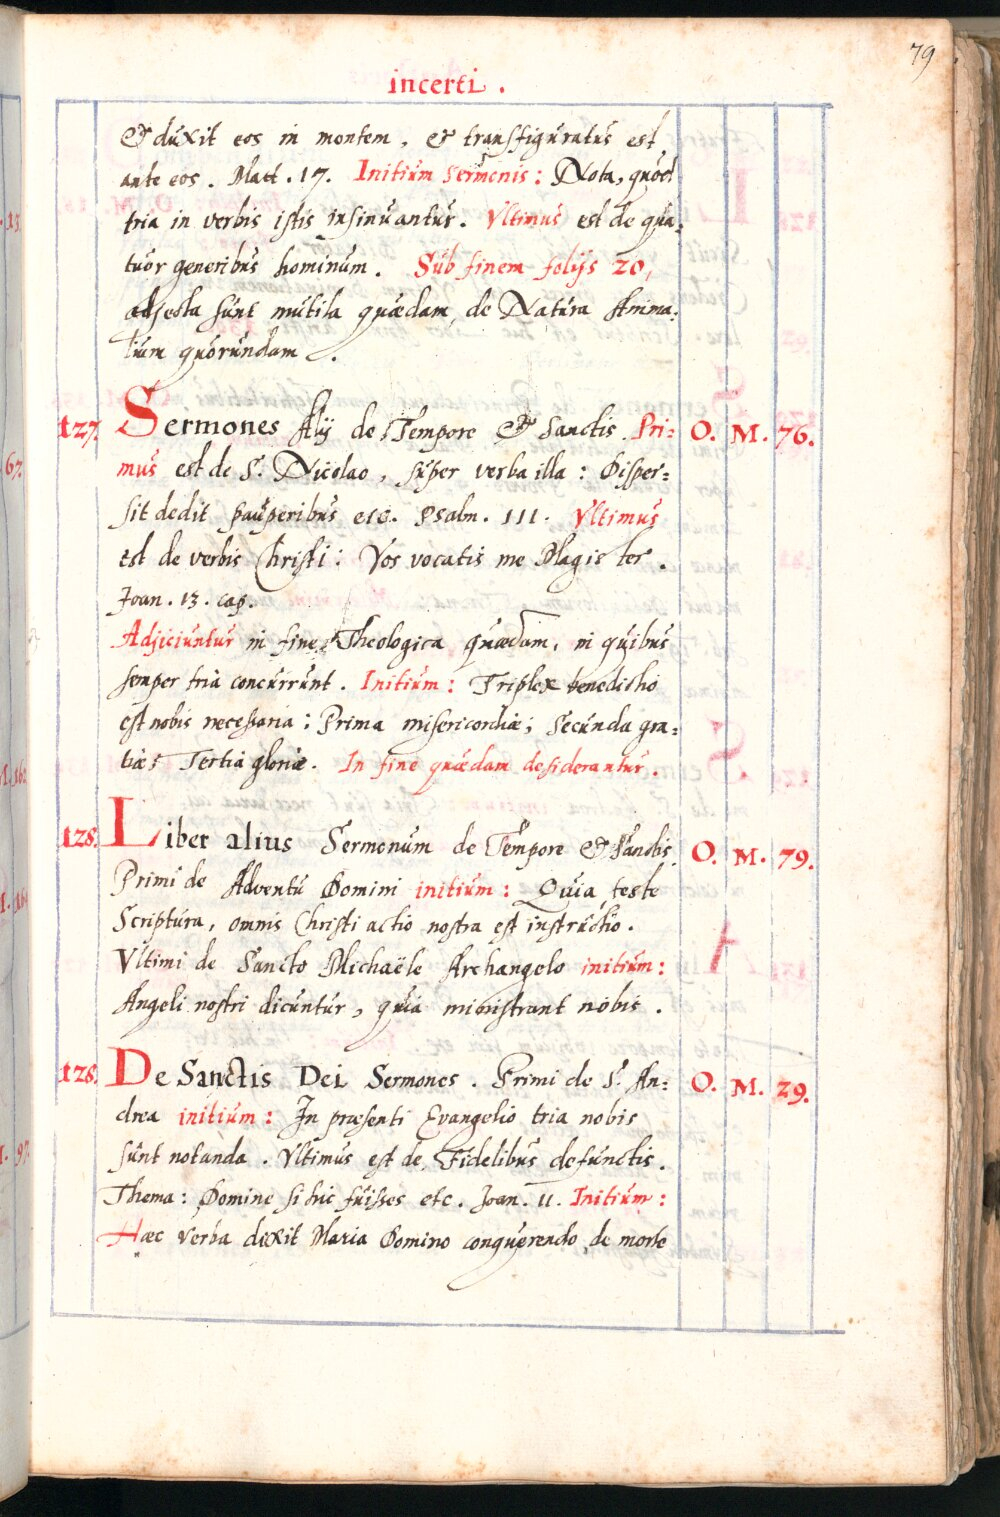 79
incerti.
& duxit eos in montem, & transfiguratus est
ante eos. Matt. 17. Initium sermonis: Nota, quod
tria in verbis istis insinuantur. Vltimus est de qua=
tuor generibus hominum. Sub finem folijs 20,
adjecta sunt mutila quædam, de Natura Anima=
lium quorundam.
127. Sermones Alij de Tempore & Sanctis. Pri= O. M. 76.
mus est de S. Nicolao, super verba illa: Disper=
sit dedit pauperibus etc. Psalm. 111. Vltimus
est de verbis Christi: Vos vocatis me Magister.
Joan. 13. cap.
Adjiciuntur in fine Theologica quædam, in quibus
semper tria concurrunt. Initium: Triplex benedictio
est nobis necessaria: Prima misericordiæ; Secunda gra=
tiæ; Tertia gloriæ. In fine quædam desiderantur.
128. Liber alius Sermonum de Tempore & Sanctis. O. M. 79.
Primi de Adventu Domini initium: Quia, teste
Scriptura, omnis Christi actio nostra est instructio.
Vltimi de Sancto Michaële Archangelo initium:
Angeli nostri dicuntur, quia ministrant nobis.
128. De Sanctis Dei Sermones. Primi de S. An= O. M. 29.
drea initium: In præsenti Evangelio tria nobis
sunt notanda. Vltimus est de Fidelibus defunctis.
Thema: Domine si hic fuisses etc. Joan. 11. Initium:
Hæc verba dixit Maria Domino conquerendo de morte